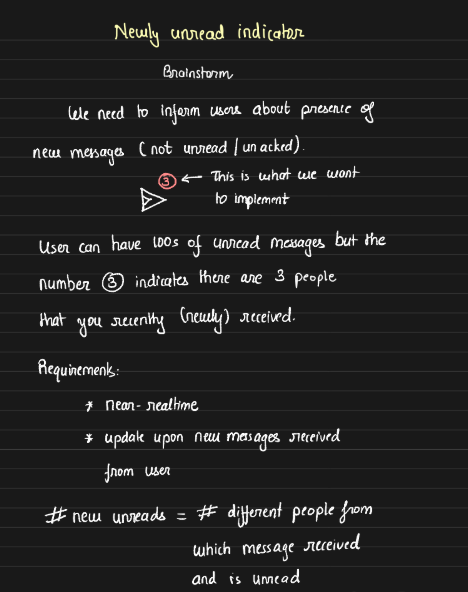 Newly unread indicator
Brainstorm
We need to inform users about presence of
new messages (not unread / unacked).
3 ← This is what we want
to implement
User can have 100s of unread messages but the
number 3 indicates there are 3 people
that you recently (newly) received.
Requirements:
* near-realtime
* update upon new messages received
from user
# new unreads = # different people from
which message received
and is unread